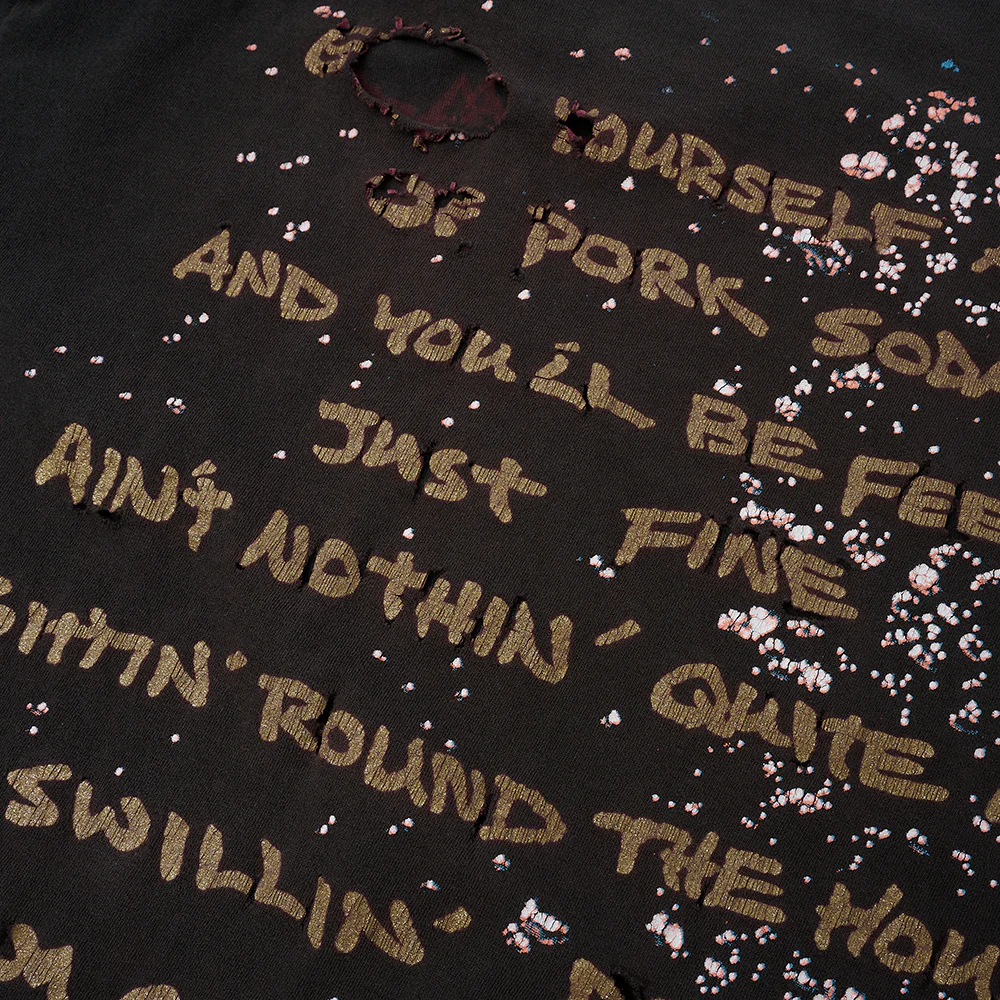 YOURSELF
OF PORK SODA
AND YOU'LL BE FEE
JUST FINE
AIN'T NOTHIN' QUITE
SITTIN' 'ROUND THE HOU
SWILLIN'